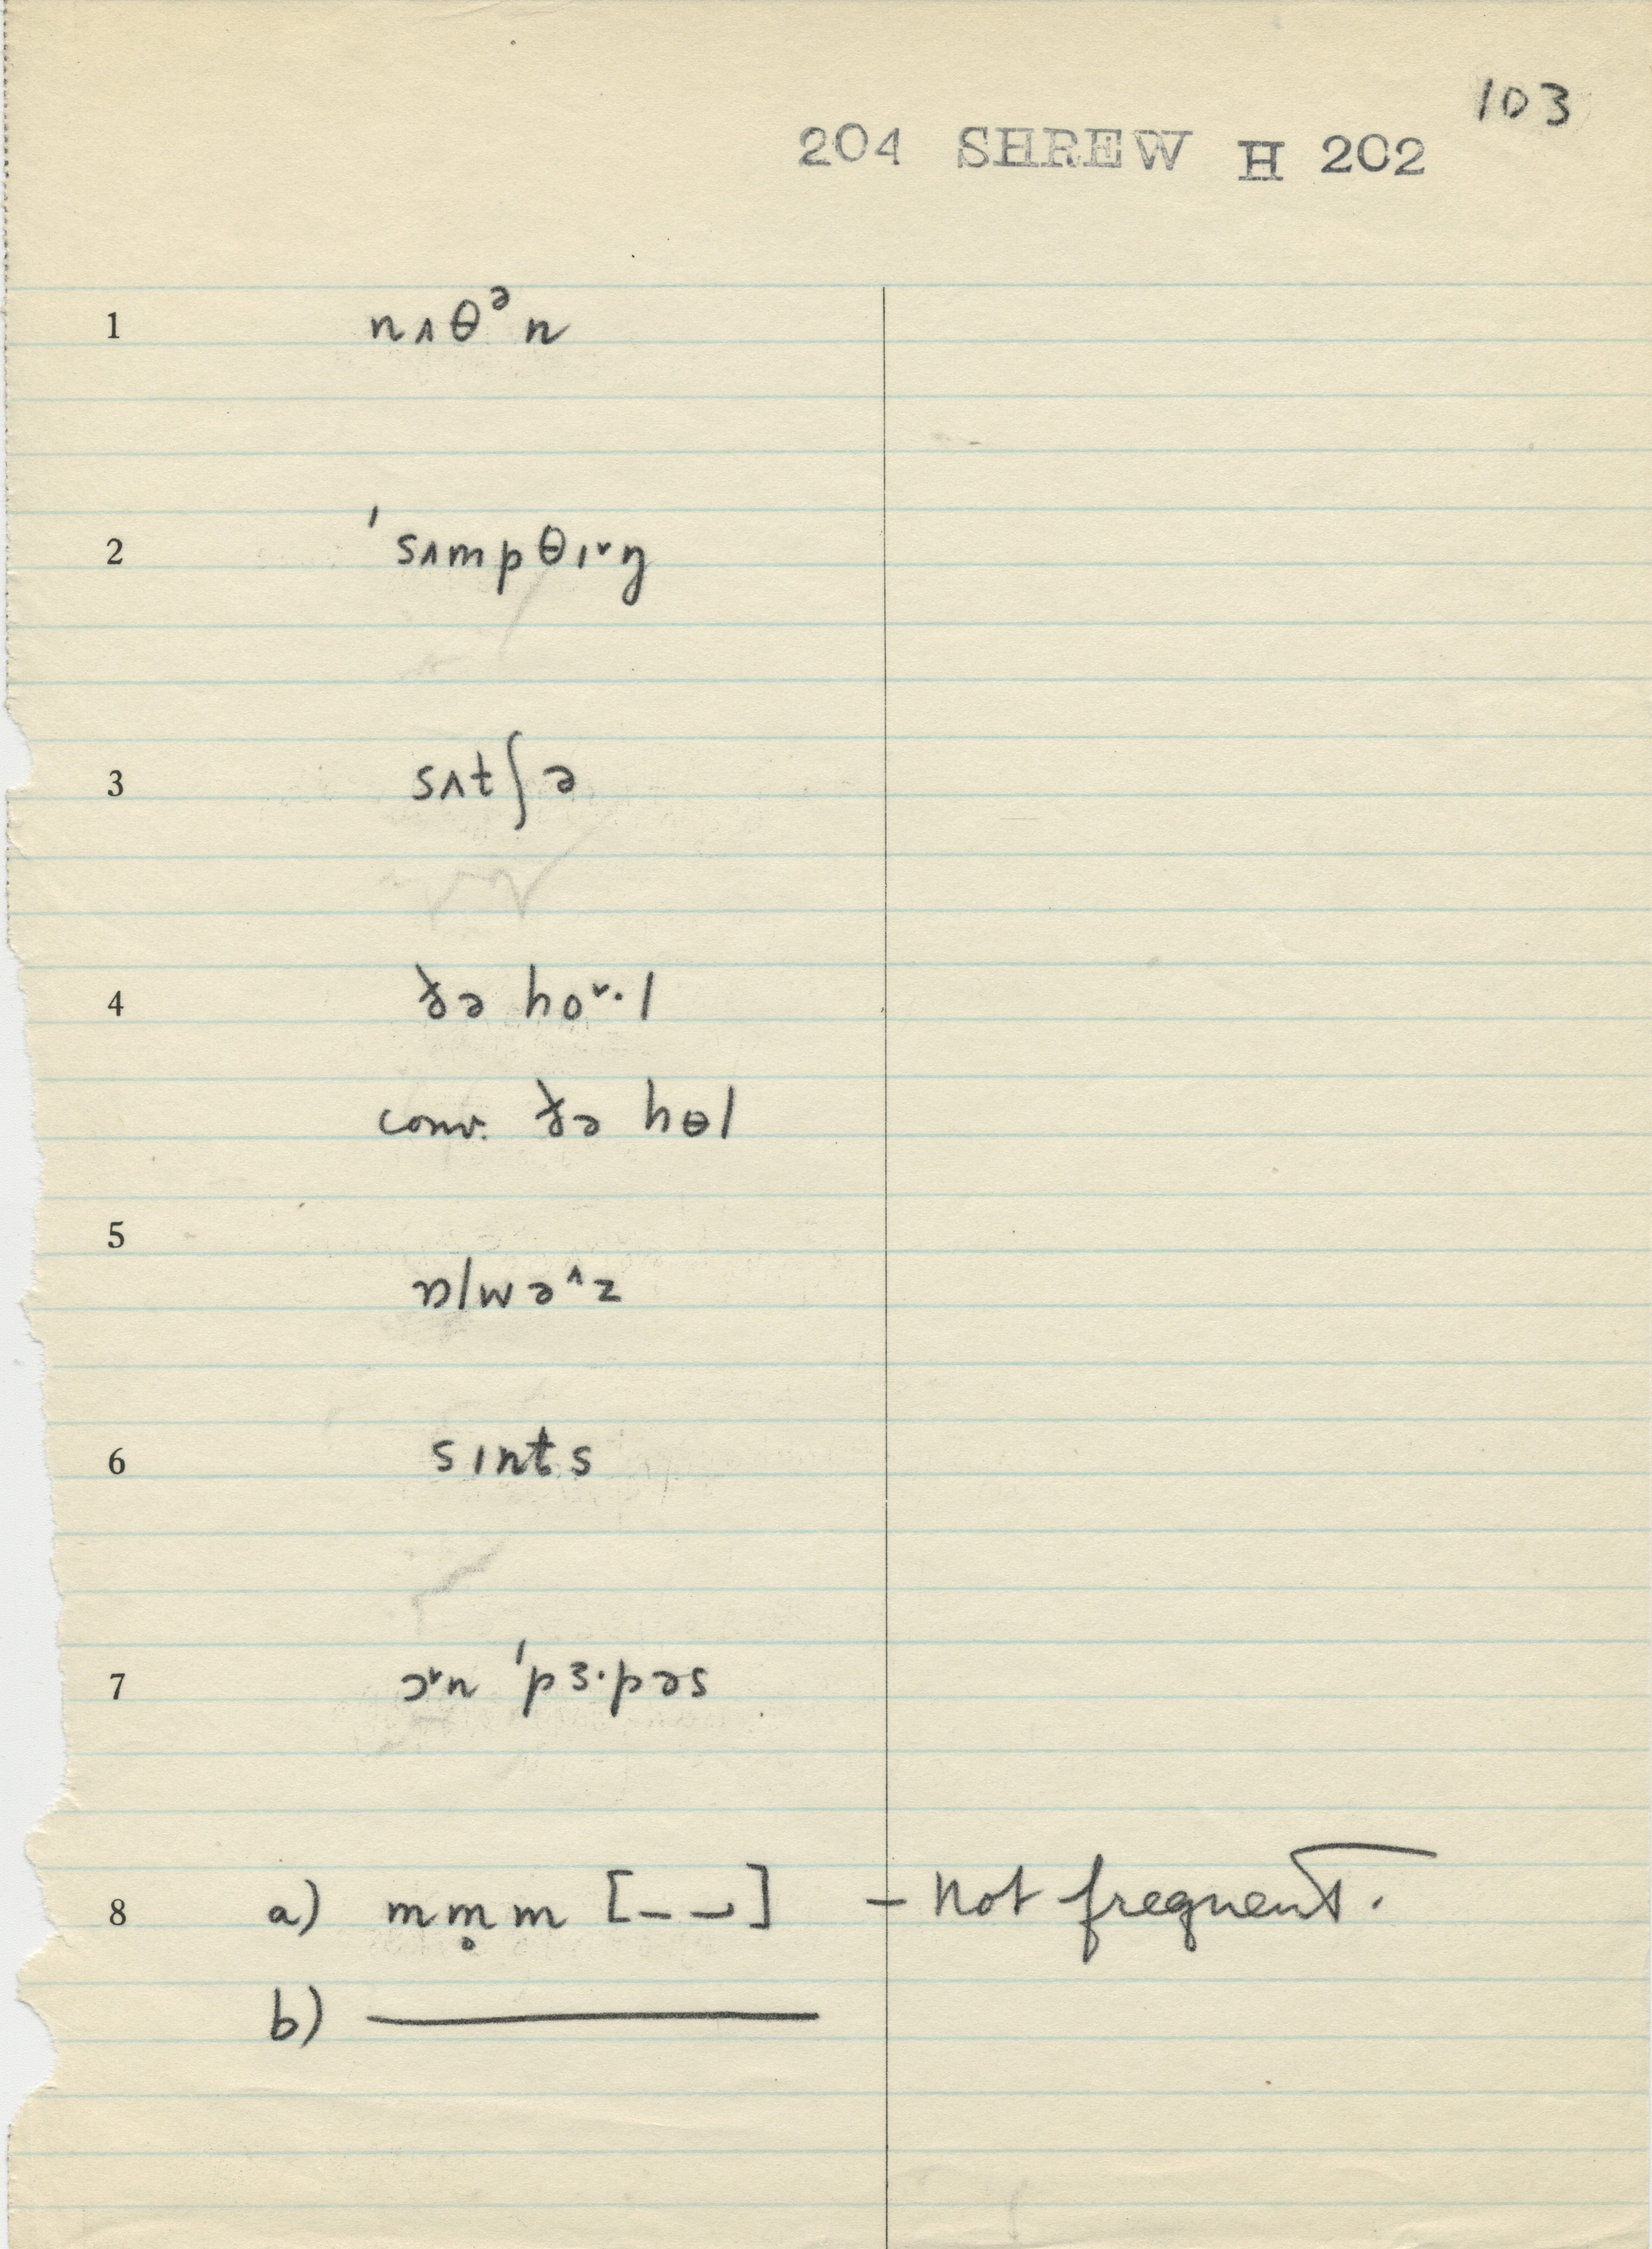 103
204 SHREW H 202
1 nʌθᵊn
2 ˈsʌmpθɪ˅ŋ
3 sʌtʃə
4 ðə ho˅·l
conv. ðə hɵl
5 ɒlwə^z
6 sɪnts
7 ɔ˅n ˈpɜ·pəs
8 a) mm̥m [– –ر] – not frequent.
b) ———